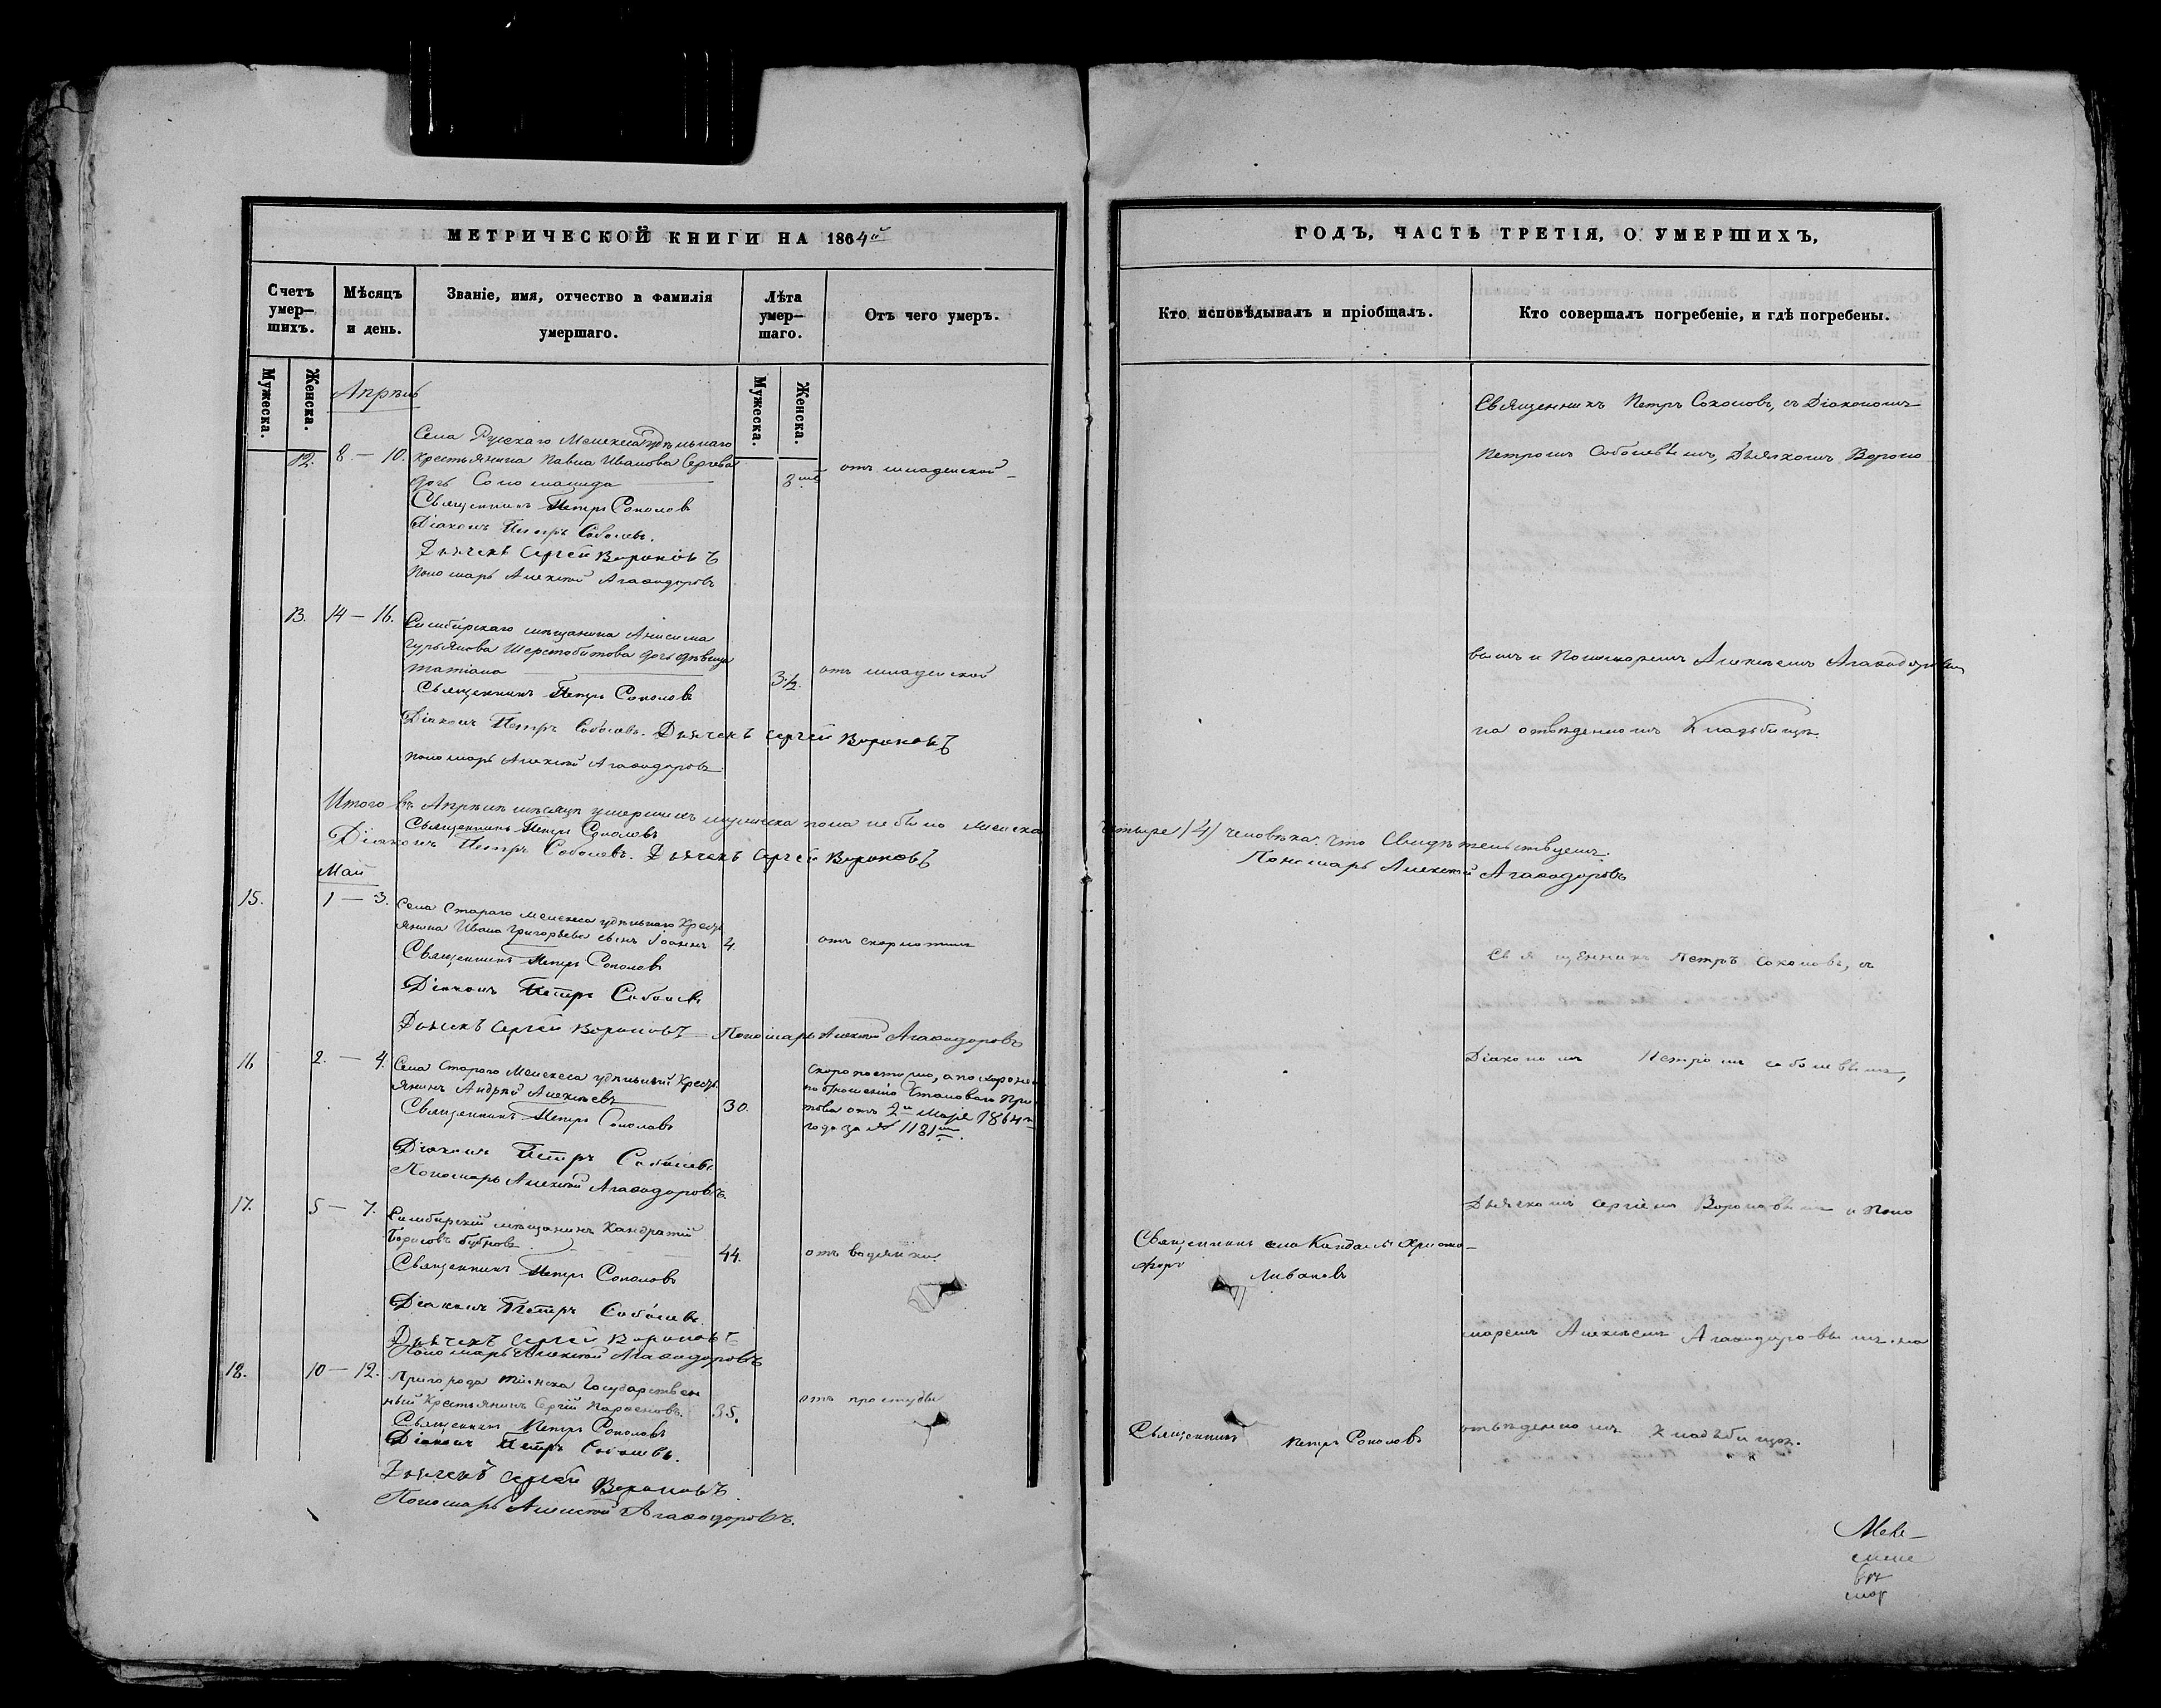 МЕТРИЧЕСКОЙ КНИГИ НА 1864й
Счетъ умер—шихъ.
Мѣсяцъ и день.
Званіе, имя, отчество и фамилія умершаго.
Лѣта умер—шаго.
Отъ чего умеръ.
Мужеска.
Женска.
Мужеска.
Женска.
Апрѣль
12.
8. — 10.
Села Русскаго Мелекеса удѣльнаго
крестьянина Павла Иванова Сергѣева
дочь Соломанида
отъ младенской
Священникъ Петръ Соколовъ
Діаконъ Петръ Соболевъ.
Дьячекъ Сергей Вороновъ
Пономарь Алексѣй Агаѳодоровъ
13.
14 — 16.
Симбирскаго мѣщанина Анисима
Гурьянова Шерстобитова дочь дѣвица
Татіана
3½.
отъ младенской
Священникъ Петръ Соколовъ
Діаконъ Петръ Соболевъ. Дьячекъ Сергей Вороновъ
Пономарь Алексѣй Агаѳодоровъ
Итого въ Апрѣлѣ мѣсяцѣ умершихъ мужеска пола не было женска
Священникъ Петръ Соколовъ
Діаконъ Петръ Соболевъ. Дьячекъ Сергей Вороновъ
Май
15.
1 — 3.
Села Стараго Мелекеса удѣльнаго Кресть
янина Ивана Григорьева сынъ Іоаннъ
4.
Священникъ Петръ Соколовъ
Діаконъ Петръ Соболевъ
Дьячекъ Сергей Вороновъ — Пономарь Алексѣй Агаѳодоровъ
16
2. — 4.
Села Стараго Мелекеса удѣльный Кресть
янинъ Андрей Алексѣевъ
30.
Скоропостижно, а похороненъ
по отношенію Становаго При
става отъ 2го Мая 1864го
года за № 1181мъ.
Священникъ Петръ Соколовъ
Діаконъ Петръ Соболевъ
Пономарь Алексѣй Агаѳодоровъ.
17.
5 — 7.
Симбирскій мѣщанинъ Кандратій
Борисовъ
44.
отъ водянки.
Священникъ Петръ Соколовъ
Діаконъ Петръ Соболевъ.
Дьячекъ Сергей Вороновъ
Пономарь Алексѣй Агаѳодоровъ
18.
10 — 12.
Пригорода Тіинска Государствен
ный Крестьянинъ Сергій Парѳеновъ.
35.
отъ простуды
Священникъ Петръ Соколовъ
Діаконъ Петръ Соболевъ.
Дьячекъ Сергей Вороновъ.
Пономарь Алексѣй Агаѳодоровъ.
ГОДЪ, ЧАСТЬ ТРЕТІЯ, О УМЕРШИХЪ,
Кто исповѣдывалъ и пріобщалъ.
Кто совершалъ погребеніе, и гдѣ погребены.
Священникъ Петръ Соколовъ, съ Діакономъ
Петромъ Соболевымъ, Дьячкомъ Вороно
вымъ и Пономаремъ Алексѣемъ Агаѳодоровымъ
на отведенномъ Кладбищѣ.
четыре /4/ человѣка. Что Свидѣтельствуемъ.
Пономарь Алексѣй Агаѳодоровъ
Священникъ Петръ Соколовъ, съ
Діакономъ Петромъ Соболевымъ,
Дьячкомъ Сергіемъ Вороновымъ и Поно
маремъ Алексѣемъ Агаѳодоровымъ. на
отведенномъ Кладбищѣ.
Священникъ села Кандалы Христо—
форъ Ливановъ
Священникъ Петръ Соколовъ